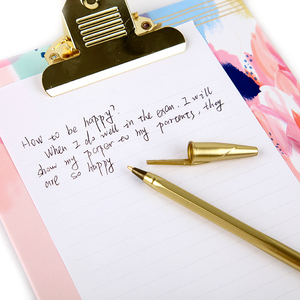 How to be happy?
When I do well in the exam. I will
show my paper to my parents, they
are so happy